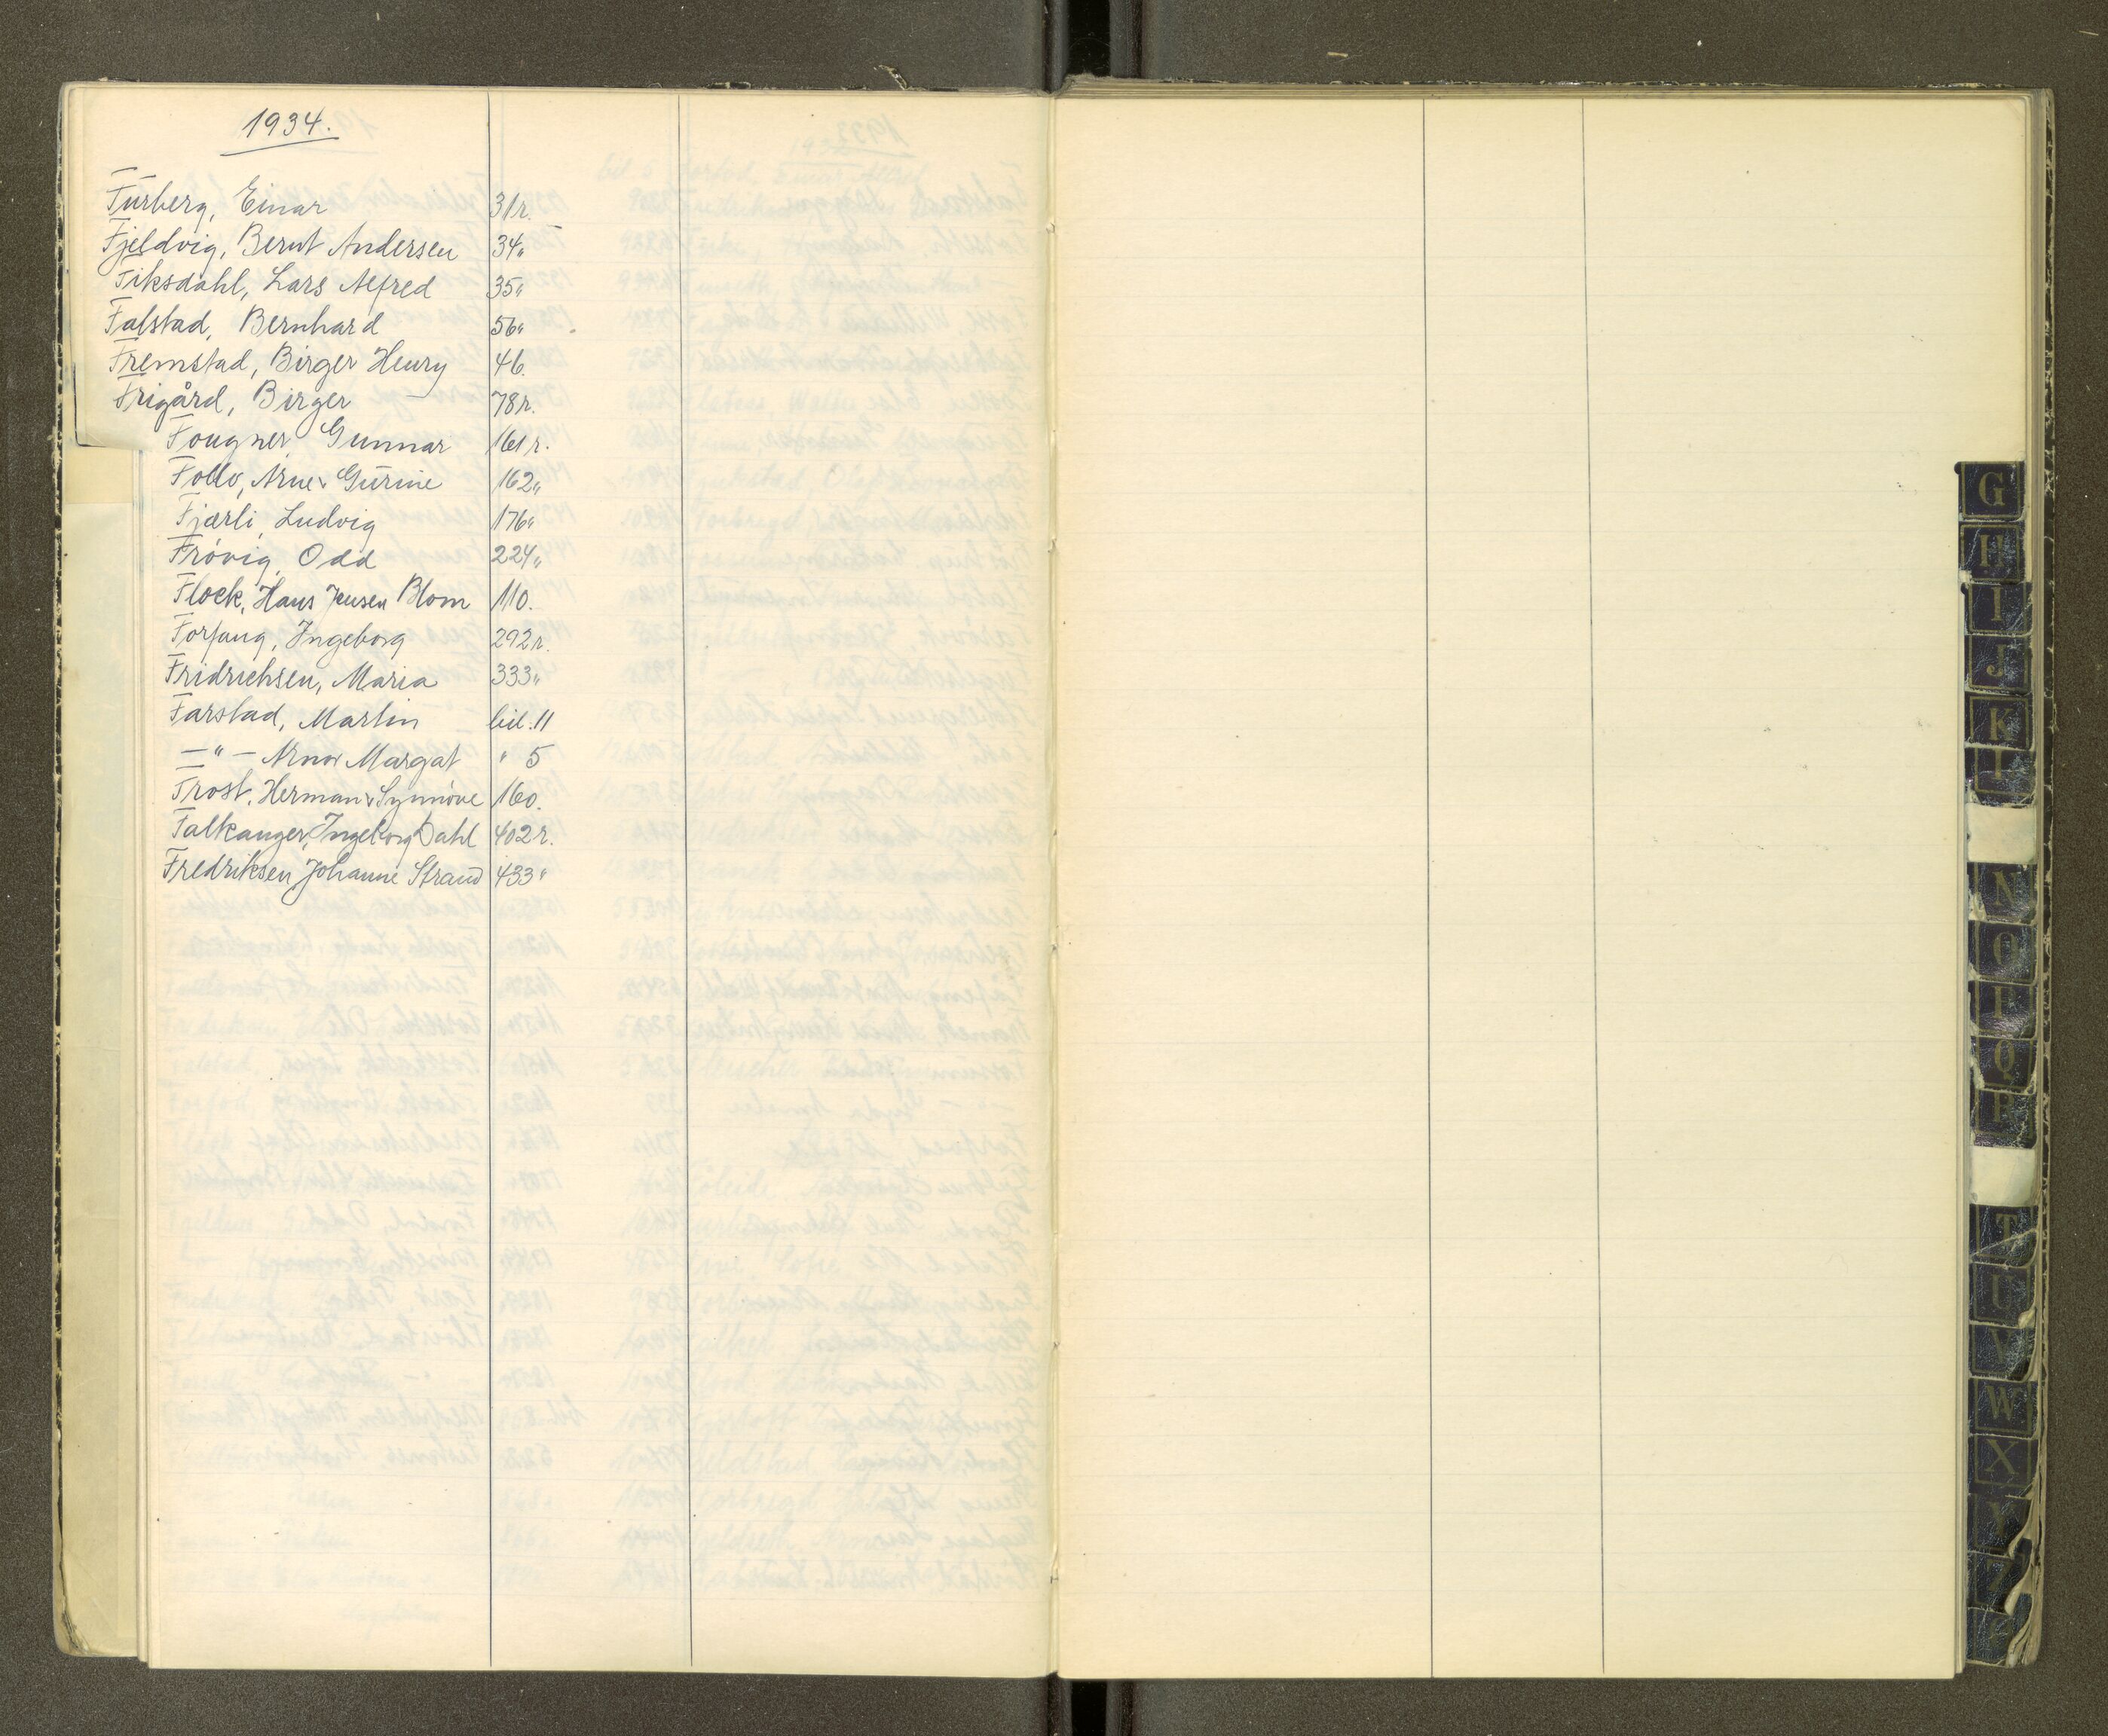 1934.
Furberg, Einar 31r.
Fjeldvig, Bernt Andersen 34"
Fiksdahl, Lars Alfred 35"
Falstad, Bernhard 56"
Fremstad, Birger Henry 46.
Frigård, Birger 78r.
Fougner, Gunnar 161r.
Follo, Arne & Gurine 162"
Fjærli, Ludvig 176"
Frøvig, Odd 224"
Flock, Hans Jensen Blom 110.
Forfang, Ingeborg 292r.
Fridrichsen, Maria 333"
Farstad, Martin bil. 11
—"— Arnor Margat " 5
Frost, Herman & Synnøve 160.
Falkanger, Ingeborg Dahl 402r.
Fredriksen Johanne Strand 433"
G
H
I
J
K
L
N
O
P
Q
R
T
U
V
W
X
Y
Z